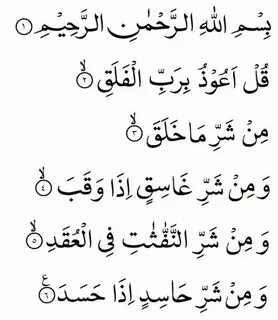 بِسْمِ اللهِ الرَّحْمٰنِ الرَّحِيْمِ ۝١
قُلْ اَعُوْذُ بِرَبِّ الْفَلَقِ ۝٢ۙ
مِنْ شَرِّ مَا خَلَقَ ۝٣ۙ
وَ مِنْ شَرِّ غَاسِقٍ اِذَا وَقَبَ ۝٤ۙ
وَ مِنْ شَرِّ النَّفّٰثٰتِ فِی الْعُقَدِ ۝٥ۙ
وَ مِنْ شَرِّ حَاسِدٍ اِذَا حَسَدَ ۝٦ع